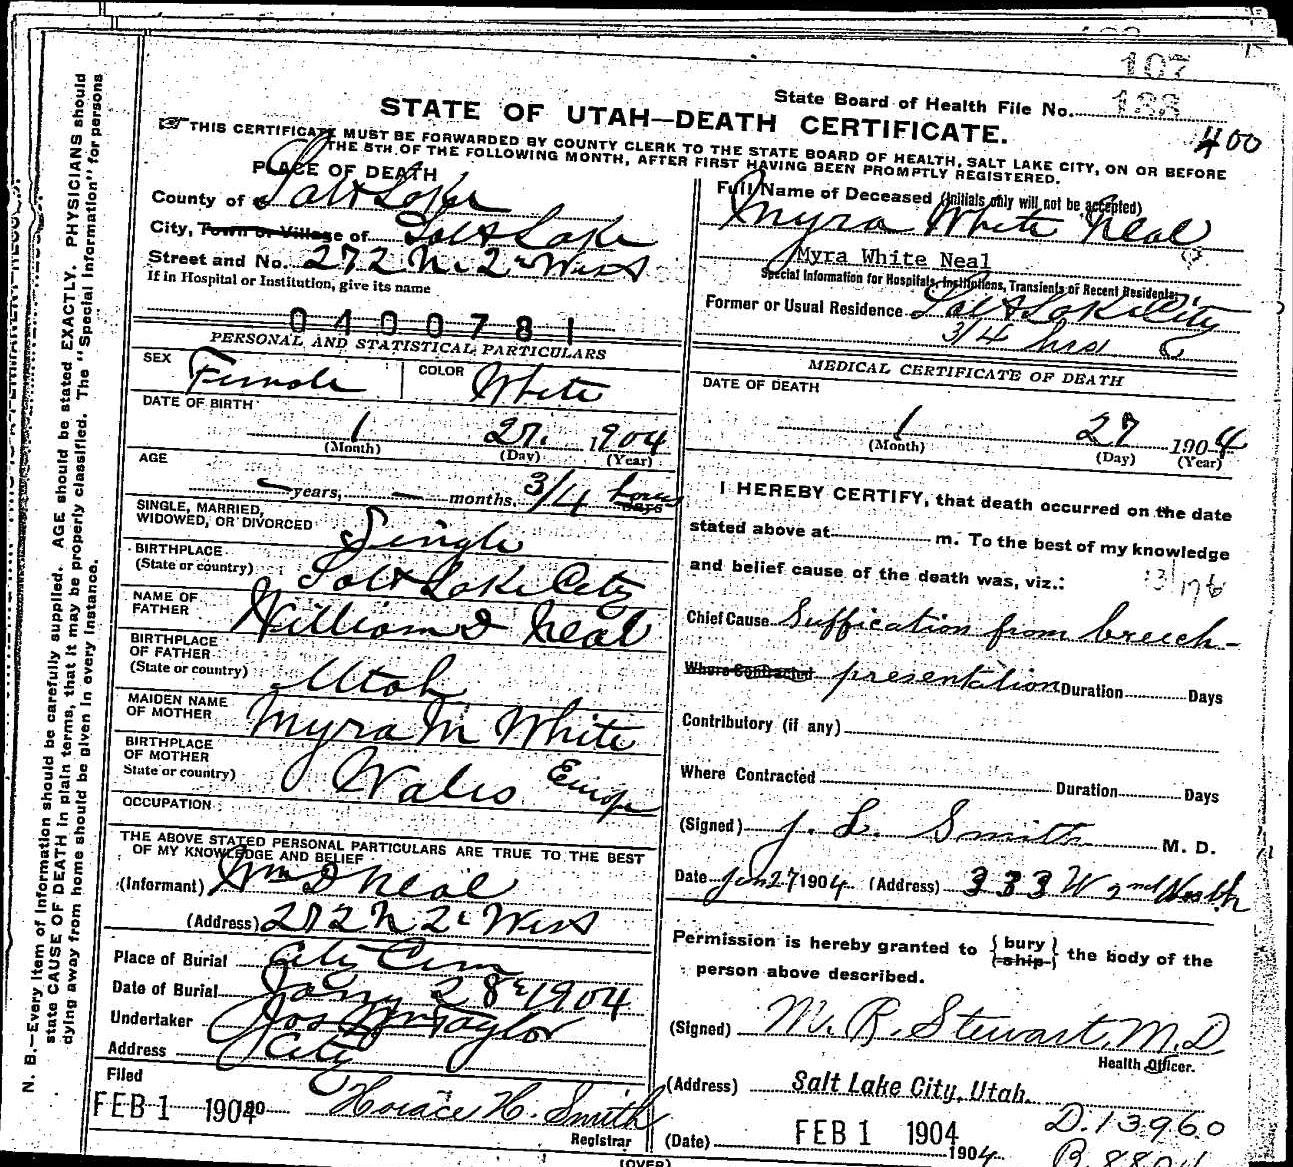 107
State Board of Health File No. 188
400
STATE OF UTAH—DEATH CERTIFICATE.
THIS CERTIFICATE MUST BE FORWARDED BY COUNTY CLERK TO THE STATE BOARD OF HEALTH, SALT LAKE CITY, ON OR BEFORE
THE 5TH OF THE FOLLOWING MONTH, AFTER FIRST HAVING BEEN PROMPTLY REGISTERED.
PLACE OF DEATH
County of Salt Lake
City, Town or Village of Salt Lake
Street and No. 272 N. 2nd West
If in Hospital or Institution, give its name
0400781
PERSONAL AND STATISTICAL PARTICULARS
SEX Female COLOR White
DATE OF BIRTH
1 27. 1904
(Month) (Day) (Year)
AGE
— years, — months, 3/4 hours days
SINGLE, MARRIED,
WIDOWED, OR DIVORCED Single
BIRTHPLACE
(State or country) Salt Lake City
NAME OF
FATHER William D Neal
BIRTHPLACE
OF FATHER
(State or country) Utah
MAIDEN NAME
OF MOTHER Myra M White
BIRTHPLACE
OF MOTHER
State or country) Wales Europe
OCCUPATION
THE ABOVE STATED PERSONAL PARTICULARS ARE TRUE TO THE BEST
OF MY KNOWLEDGE AND BELIEF
(Informant) Wm D Neal
(Address) 272 N 2d West
Place of Burial City Cem
Date of Burial Jany 28th 1904
Undertaker Jos Wm Taylor
Address City
Filed
FEB 1 1904 190 Horace H. Smith
Registrar
Full Name of Deceased (Initials only will not be accepted)
Myra White Neal
Myra White Neal
Special Information for Hospitals, Institutions, Transients of Recent Residents:
Former or Usual Residence Salt Lake City
3/4 hrs
MEDICAL CERTIFICATE OF DEATH
DATE OF DEATH
1 27 1904
(Month) (Day) (Year)
I HEREBY CERTIFY, that death occurred on the date
stated above at m. To the best of my knowledge
and belief cause of the death was, viz.:
Chief Cause Suffication from breech-
Where Contracted presentation Duration Days
Contributory (if any)
Where Contracted Duration Days
(Signed) J. L. Smith M. D.
Date Jan 27 1904 (Address) 333 W 2nd North
Permission is hereby granted to {bury ship} the body of the
person above described.
(Signed) M. R. Stewart, M.D
Health Officer.
(Address) Salt Lake City, Utah.
D. 13960
(Date) FEB 1 1904 1904
(OVER)
N. B.—Every item of information should be carefully supplied. AGE should be stated EXACTLY. PHYSICIANS should
state CAUSE OF DEATH in plain terms, that it may be properly classified. The "Special Information" for persons
dying away from home should be given in every instance.